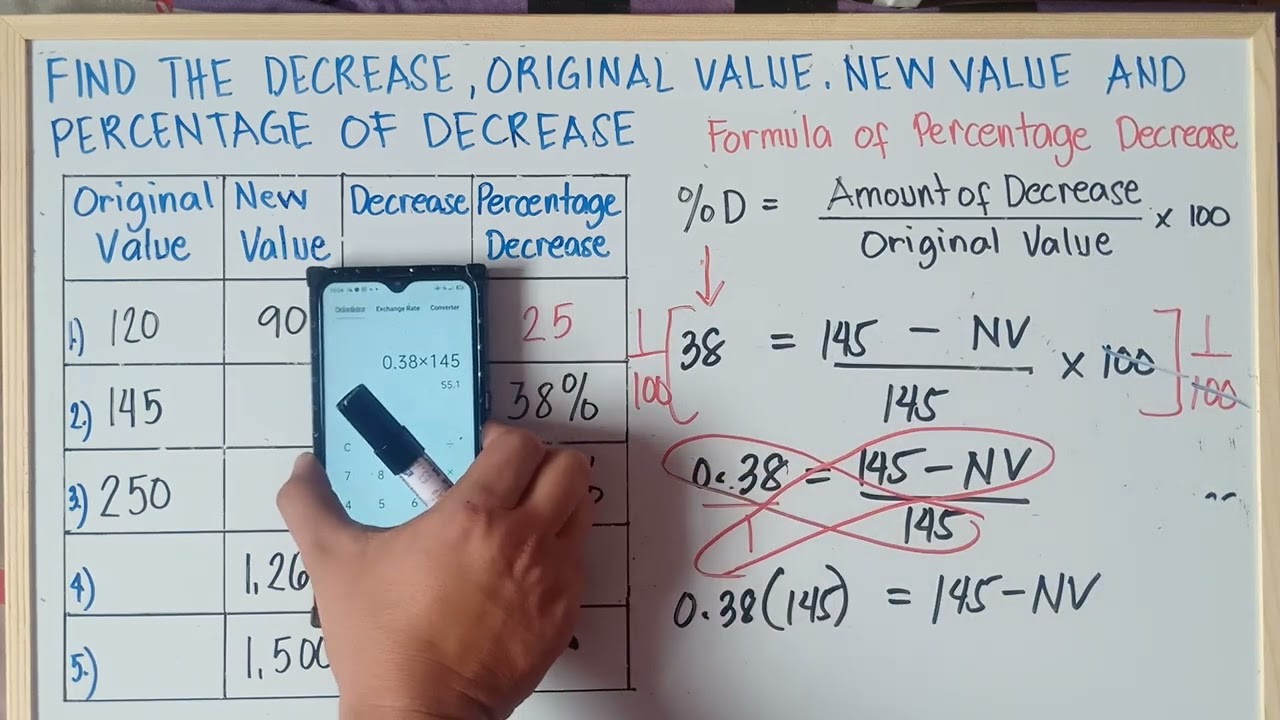 FIND THE DECREASE, ORIGINAL VALUE. NEW VALUE AND
PERCENTAGE OF DECREASE
Formula of Percentage Decrease
Original Value
New Value
Decrease
Percentage Decrease
1) 120 90 25
2) 145 38%
3) 250
4) 1,26
5) 1,500
Calculator Exchange Rate Converter
0.38×145
55.1
C ÷
7 8 ×
4 5 6
%D = Amount of Decrease / Original Value x 100
1/100 [38 = 145 - NV / 145 x 100] 1/100
0.38 = 145 - NV
1 145
0.38(145) = 145 - NV